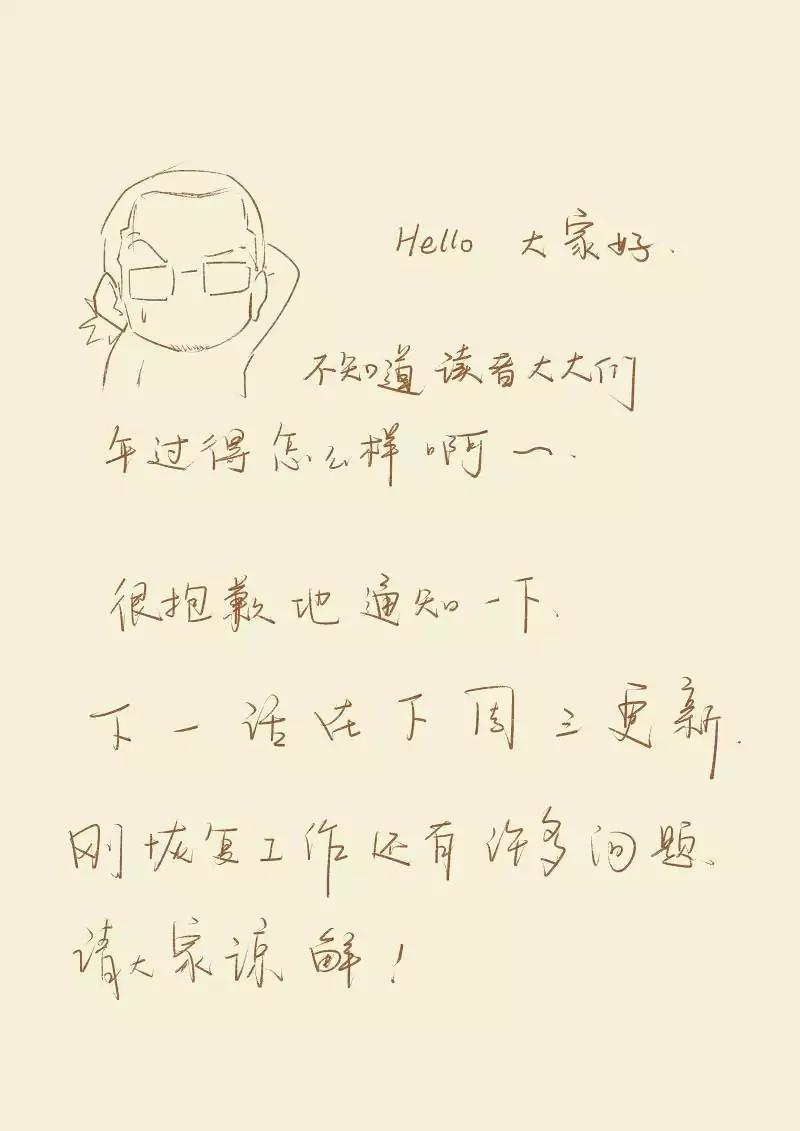 Hello 大家好.
不知道读者大大们
年过得怎么样啊~.
很抱歉地通知一下、
下一话在下周三更新.
刚恢复工作还有许多问题、
请大家谅解!